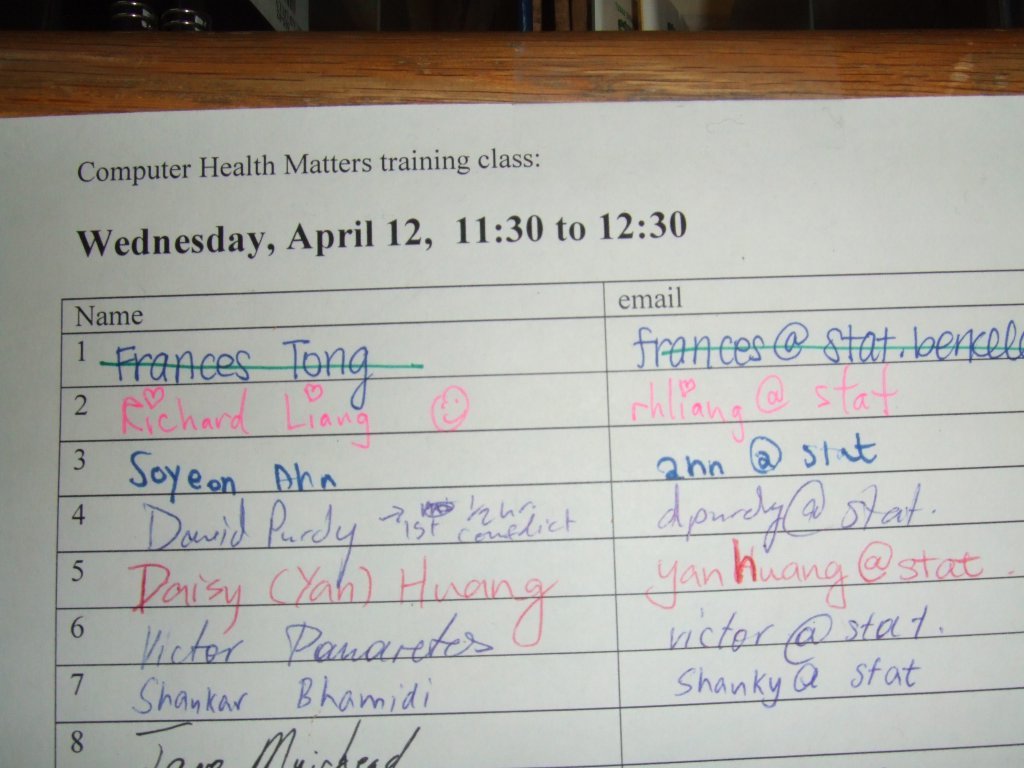 Computer Health Matters training class:
Wednesday, April 12, 11:30 to 12:30
Name email
1 Frances Tong frances@stat.berkele
2 Richard Liang rhliang@stat
3 Soyeon Ahn ahn @ stat
4 David Purdy → 1st 1/2 hr. conflict dpurdy@stat.
5 Daisy (Yan) Huang yanhuang@stat.
6 Victor Panaretos victor@stat.
7 Shankar Bhamidi Shanky@ stat
8 Muirhead